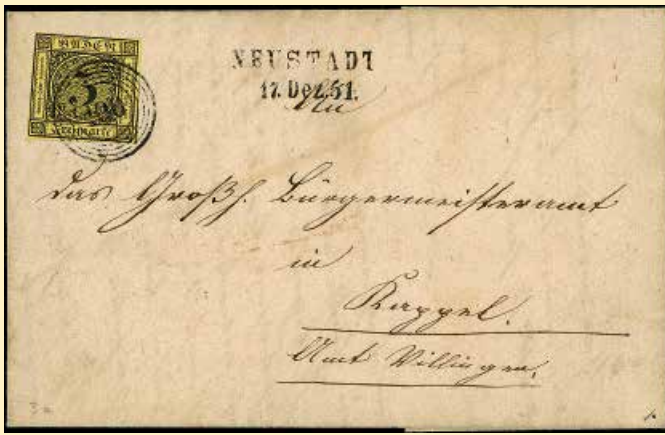 BADEN
3
Freimarke
NEUSTADT
17. Dez. 51.
An
das Großh. Bürgermeisteramt
in
Kappel.
Amt Villingen.
3a